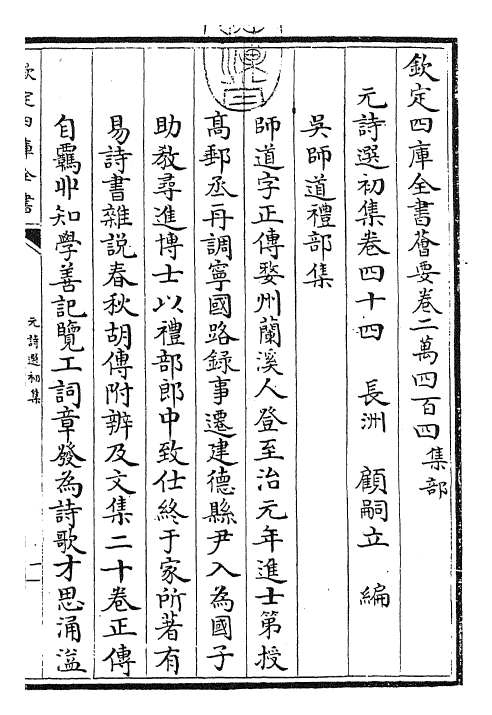 欽定四庫全書薈要卷二萬四百四 集部
元詩選初集卷四十四 長洲 顧嗣立 編
吳師道禮部集
師道字正傳婺州蘭溪人登至治元年進士第授
高郵丞再調寧國路録事遷建德縣尹入為國子
助敎尋進博士以禮部郎中致仕終于家所著有
易詩書雜説春秋胡傳附辨及文集二十卷正傳
自羈丱知學善記覽工詞章發為詩歌才思涌溢
欽定四庫全書
元詩選初集
一